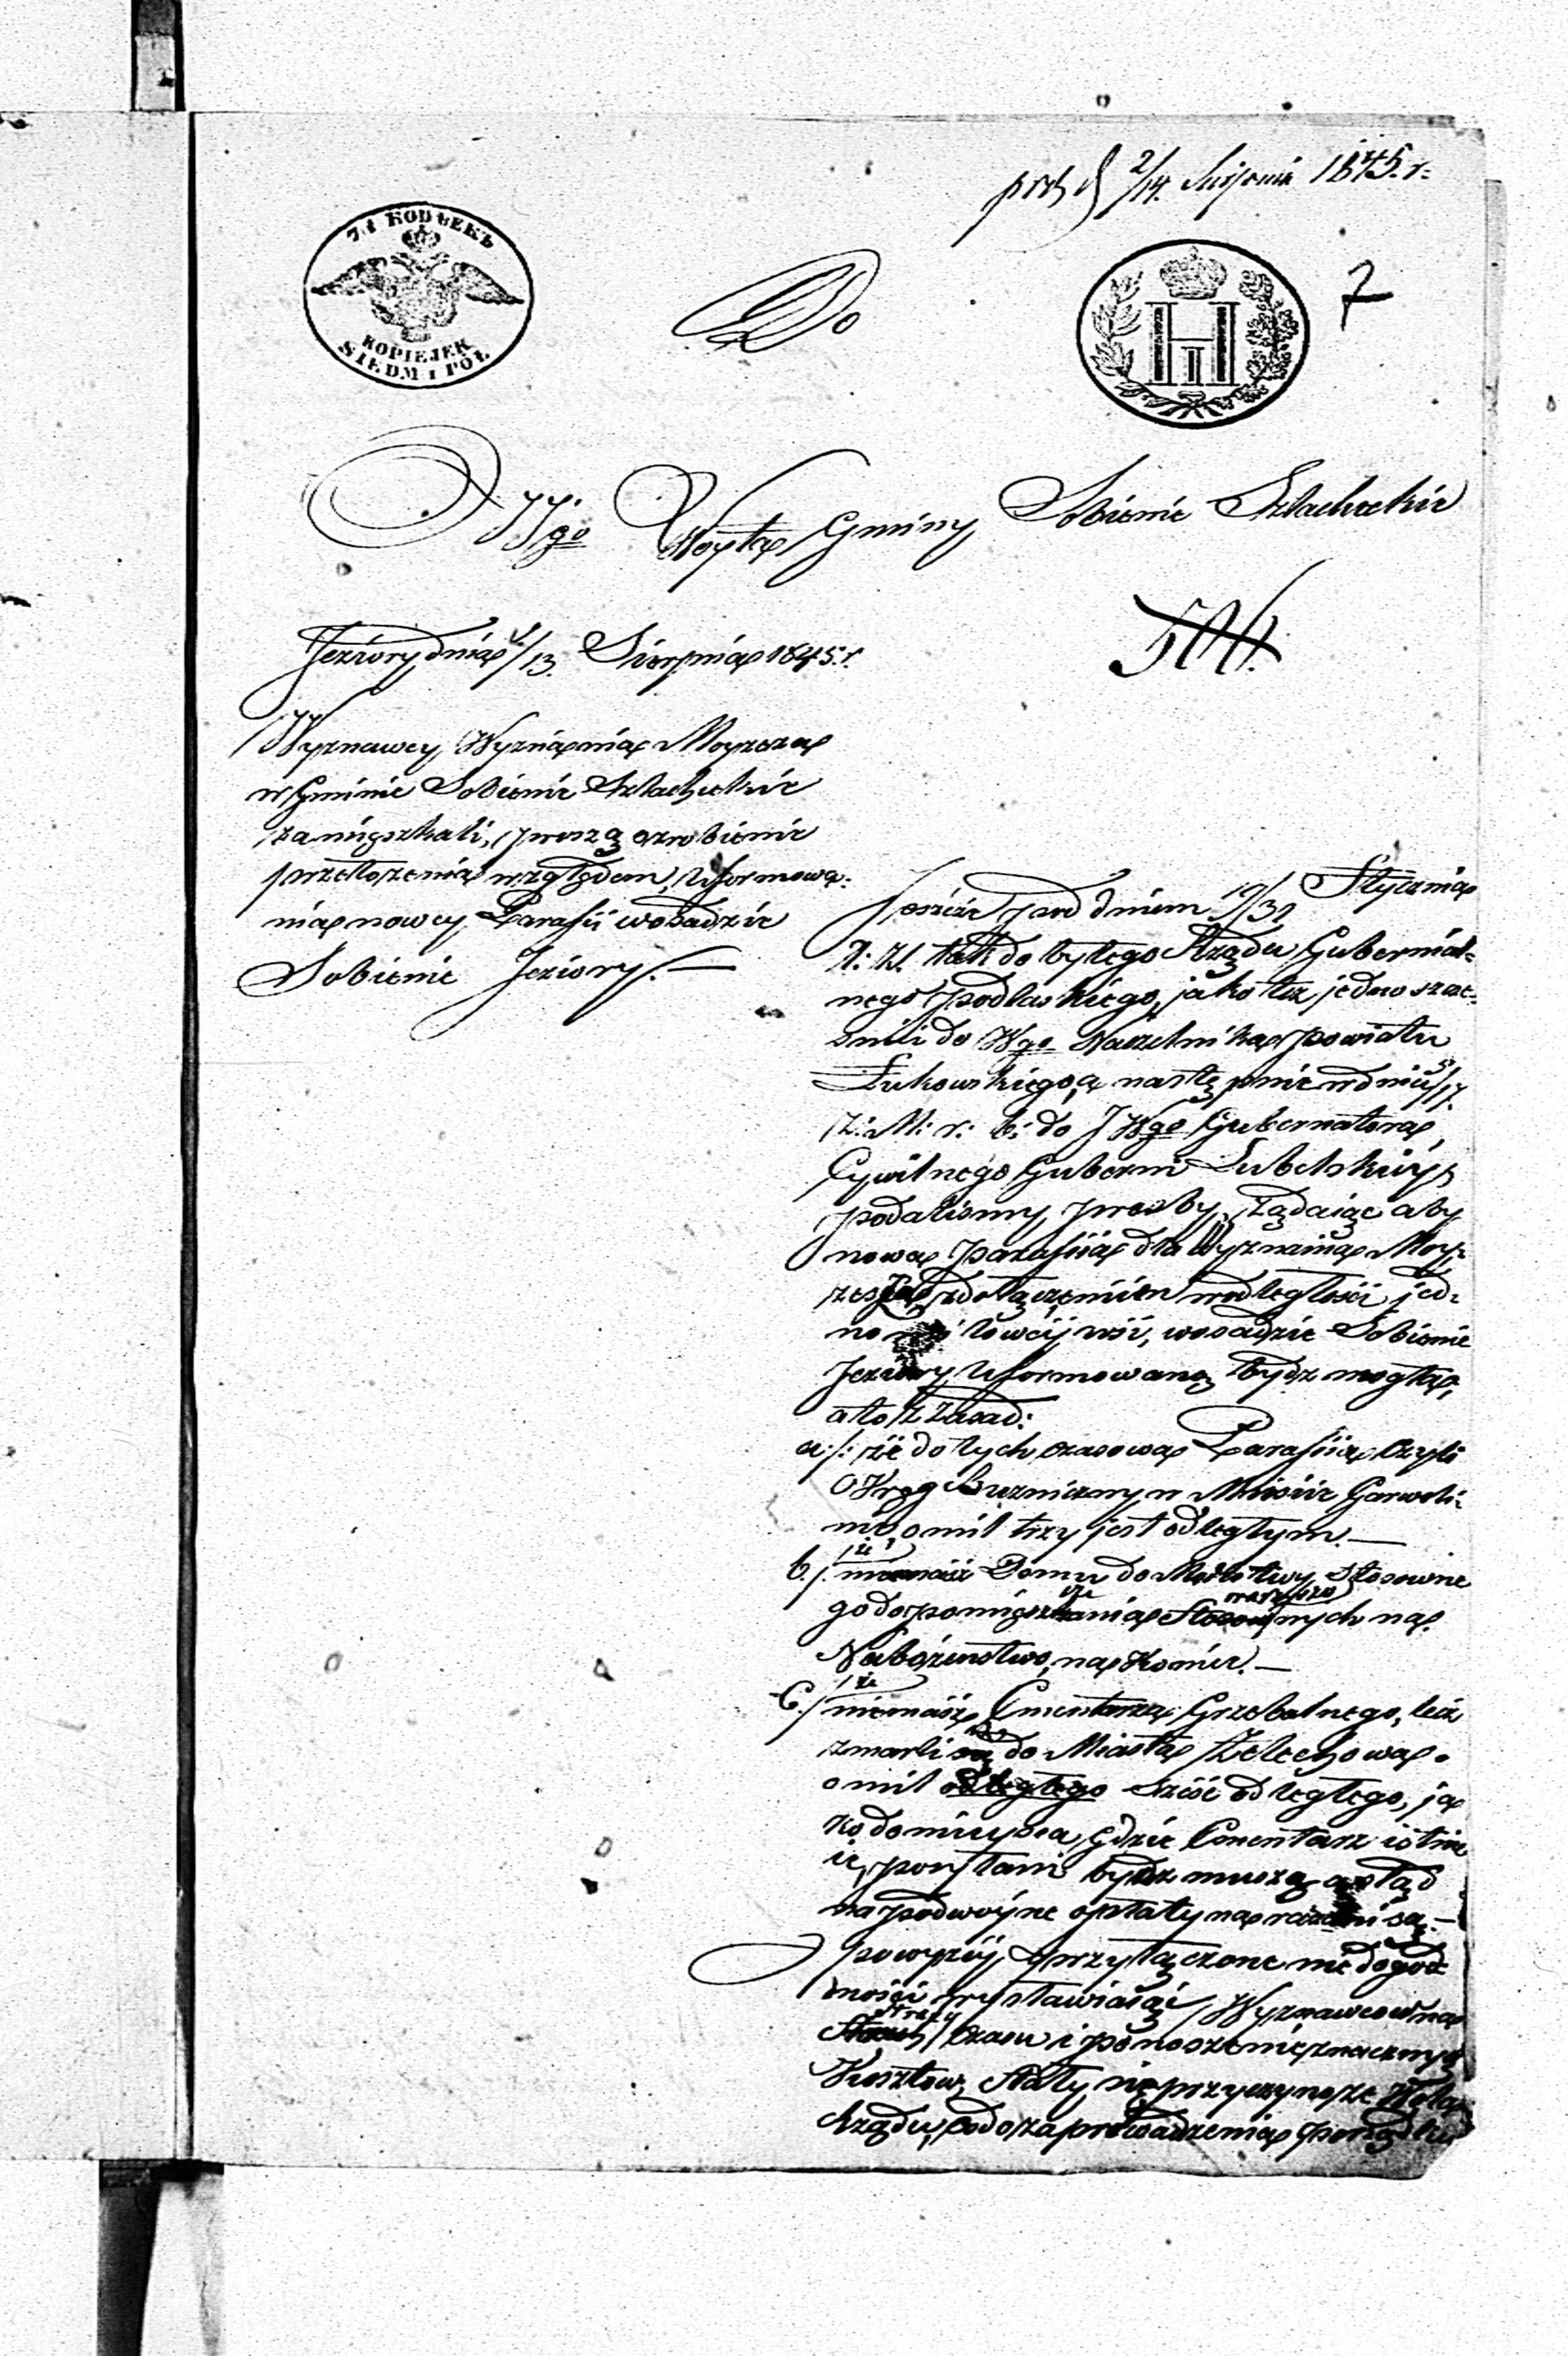 prz d 2/14. Sierpnia 1845. r.
7½ КОПѢЕКЪ
KOPIEJEK
SIEDM i PÓŁ
Do
7
НI
Wgo Woyta Gminy Sobienie Szlacheckie
504.
Jeziory dnia 1/13 Sierpnia 1845. r.
Wyznawcy Wyznania Moyżesza
w Gminie Sobienie Szlacheckie
zamięszkali, proszą o zrobienie
przełożenia względem uformowa:
nia nowey Parafii w osadzie
Sobienie Jeziory.—
Jeszcze pod dniem 19/31 Stycznia
r: z. tak do byłego Rządu Gubernial-
nego Podlaskiego, jako też jednoszcze-
śnie do Wgo Naczelnika Powiatu
Łukowskiego, a następnie w dniu 5/17.
z: M: r: b: do JWgo Gubernatora
Cywilnego Guberni Lubelskiéy
podaliśmy prośby, żądaiąc aby
nowa parafiia dla Wyznania Moy-
żesza z dołączeniem w odległości jed-
no milowéy wsi, w osadzie Sobienie
Jeziory uformowaną bydź mogła,
a to z zasad:
a./: że dotychczasowa Parafiia czyli
Okręg Bużniczny w Mieście Garwoli-
nie o mil trzy jest odległym.—
b./. że niemasz Domu do Modlitwy stosowne
go do pomięszczenia uczęszczających na
Nabożeństwo, na koniec.—
C./ że niemasz Cmentarza Grzebalnego, lecz
zmarli do Miasta Żelechowa
o mil odległego sześć odległego, ja
ko do miejsca, gdzie Cmentarz istnie
ie, bydź muszą a stąd
na podwóyne opłaty narażeni są.—
Powyżéy przytączone niedogod
ności wystawiaiąc Wyznawców na
stratę czasu i ponoszenie znacznych
Kosztów, stały się przyczyną że Wola
Rządu, co do zaprowadzenia porządku